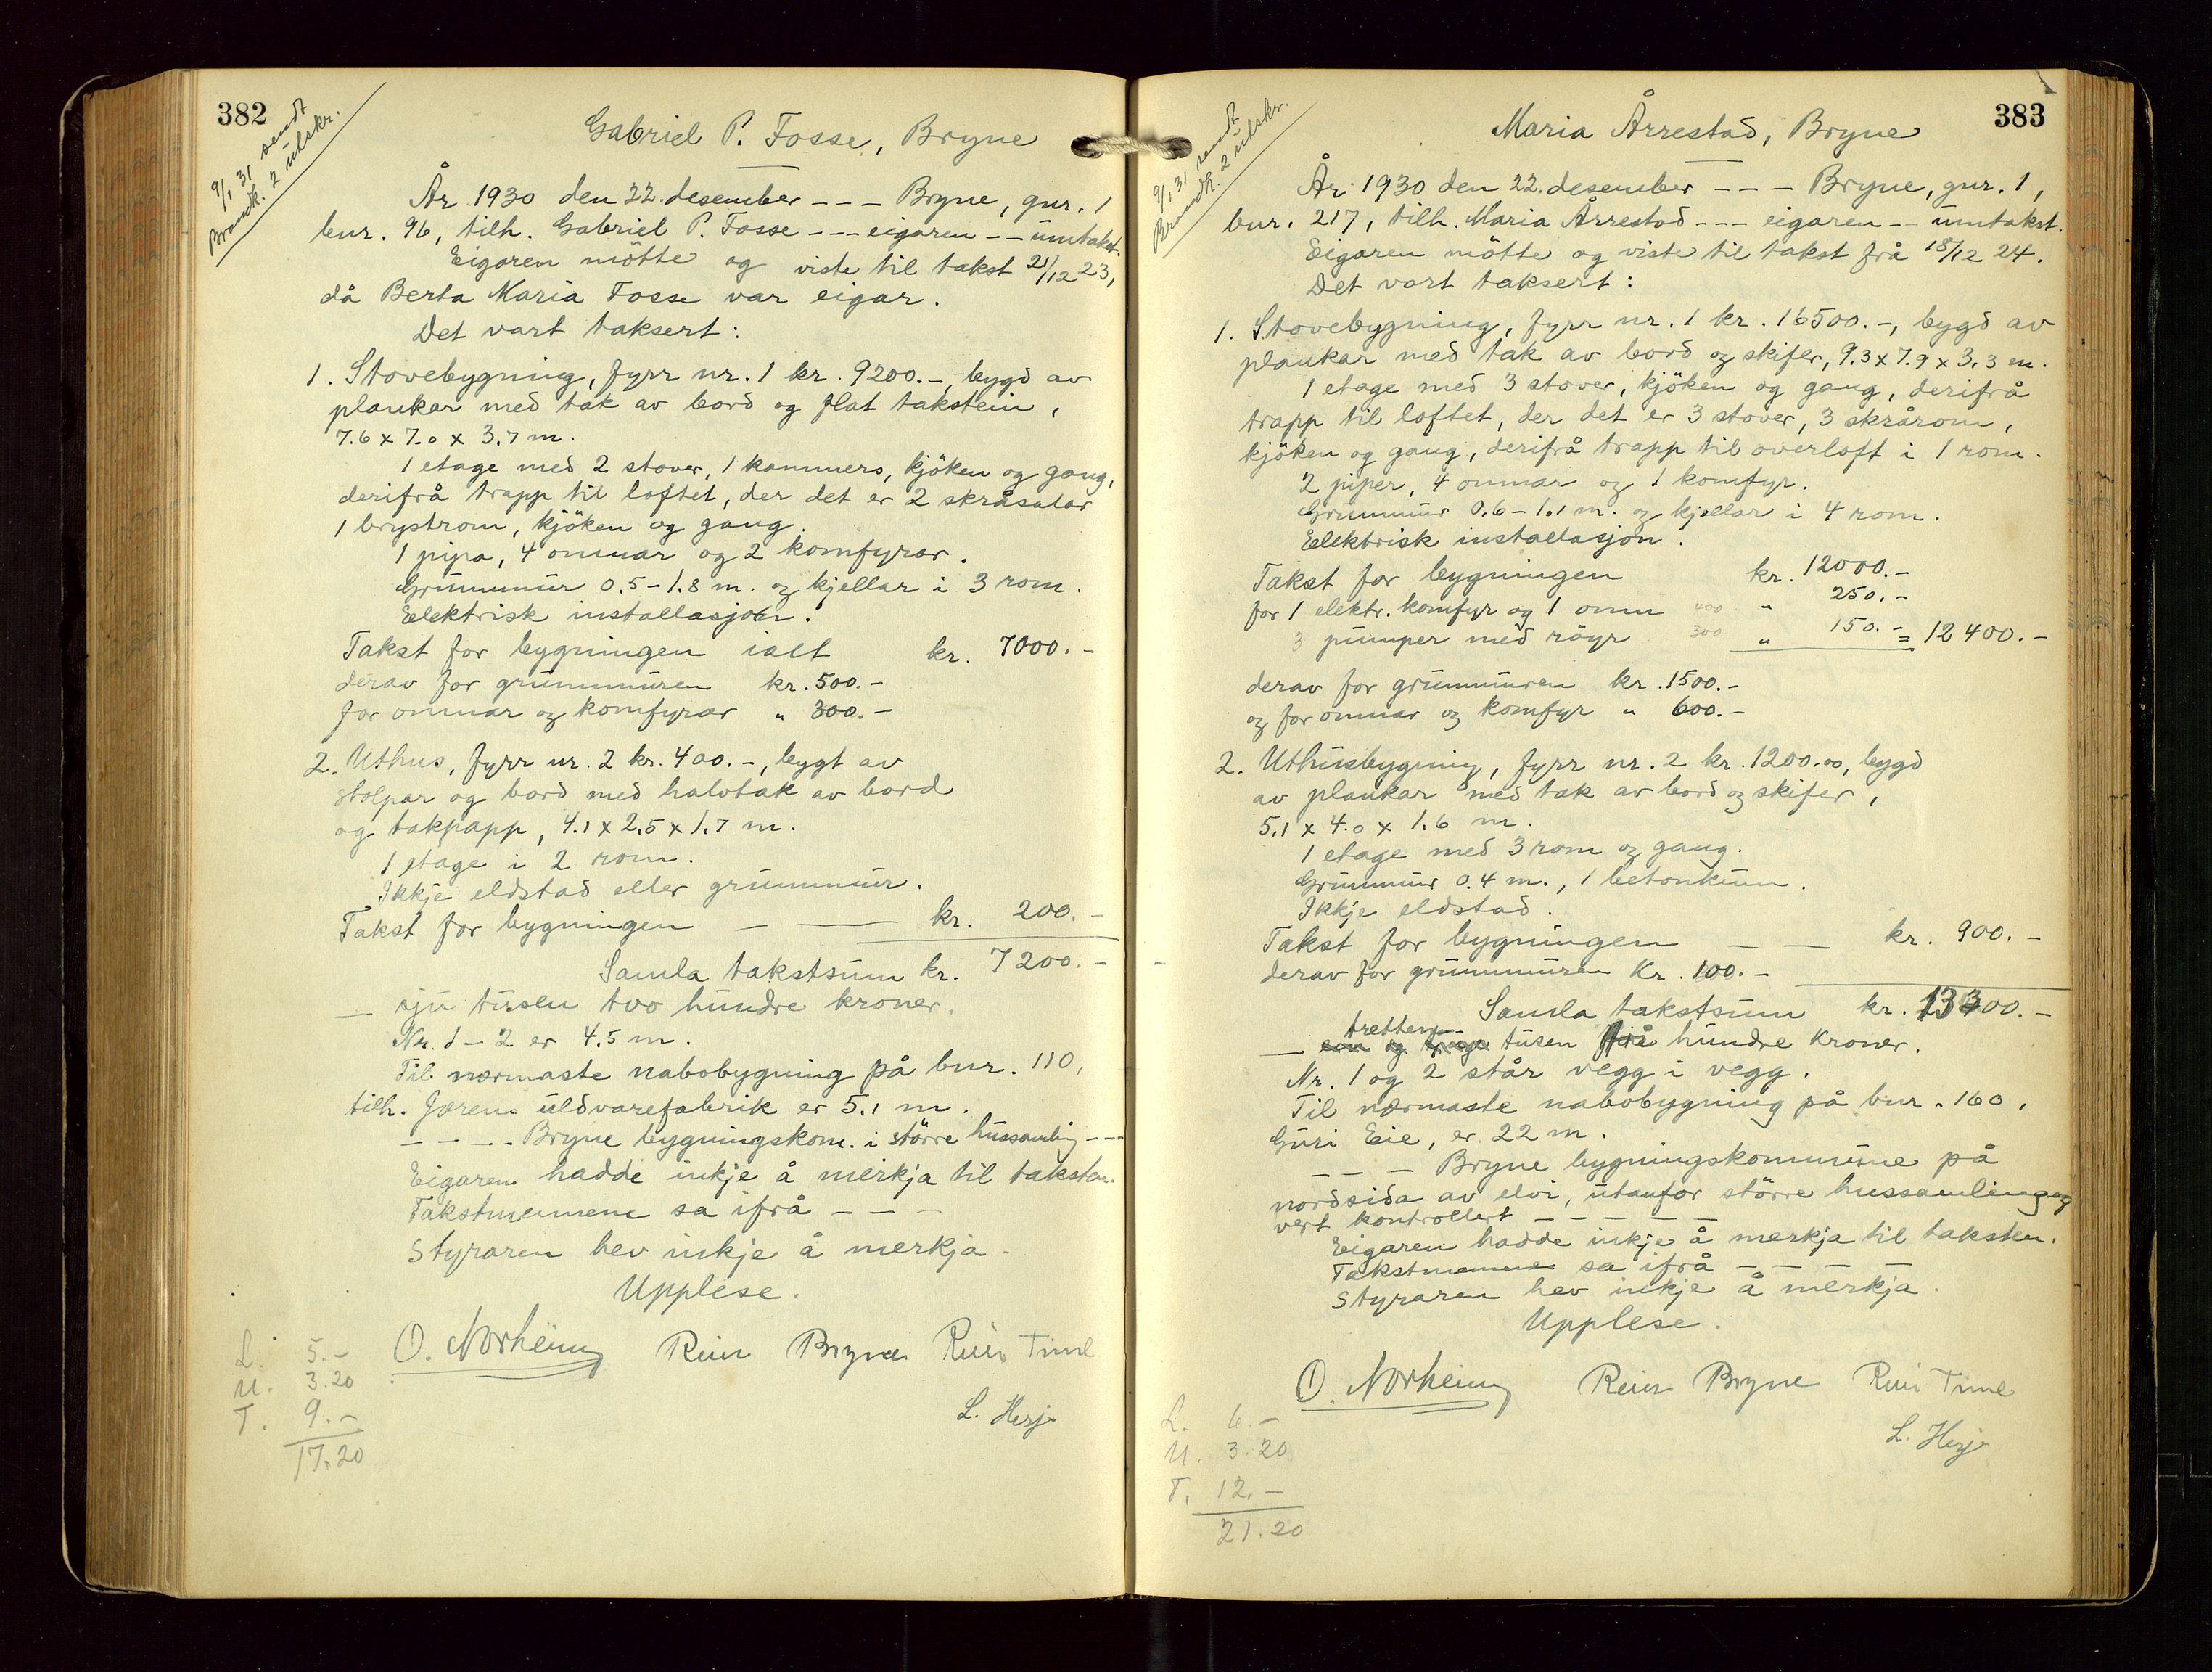 382
9/1 31 sendt
Brandk. 2 utskr.
Gabriel P. Fosse, Bryne
År 1930 den 22. desember - - - Bryne, gnr. 1
bnr. 96, tilh. Gabriel P. Fosse - - - eigaren - - umtakst.
Eigaren mötte og viste til takst 21/12 23,
då Berta Maria Fosse var eigar.
Det vart taksert:
1. Stovebygning, fyrr nr. 1 kr. 9200.-, bygd av
plankar med tak av bord og flat takstein,
7.6 x 7.0 x 3.7 m.
1 etage med 2 stover, 1 kammers, kjöken og gang,
derifrå trapp til loftet, der det er 2 skråsalar
1 brystrom, kjöken og gang.
1 pipa, 4 omnar og 2 komfyrar.
Grunnmur 0.5-1.8 m. og kjellar i 3 rom.
Elektrisk installasjon.
Takst for bygningen ialt kr. 7000.-
derav for grunnmuren kr. 500.-
for omnar og komfyrar " 300.-
2. Uthus, fyrr nr. 2 kr. 400.-, bygt av
stolpar og bord med halvtak av bord
og takpapp, 4.1 x 2.5 x 1.7 m.
1 etage i 2 rom.
Ikkje eldstad eller grunnmur.
Takst for bygningen — — kr. 200.-
Samla takstsum kr. 7200.-
— sju tusen tvo hundre kroner.
Nr. 1-2 er 4.5 m.
Til nærmaste nabobygning på bnr. 110,
tilh. Jæren uldvarefabrik er 5.1 m.
- - - - Bryne bygningskom. i större hussamling - - -
Eigaren hadde inkje å merkja til taksten.
Takstmennene sa ifrå - - -
Styraren hev inkje å merkja -
Upplese.
O. Norheim Reier Bryne Reier Time
L. Herj
L. 5.-
U. 3.20
T. 9.-
17.20
383
9/1 31 sendt
Brandk. 2 utskr.
Maria Årrestad, Bryne
År 1930 den 22. desember - - - Bryne, gnr. 1,
bnr. 217, tilh. Maria Årrestad - - - eigaren - - umtakst.
Eigaren mötte og viste til takst frå 18/12 24.
Det vart taksert:
1. Stovebygning, fyrr nr. 1 kr. 16500.-, bygd av
plankar med tak av bord og skifer, 9.3 x 7.9 x 3.3 m.
1 etage med 3 stover, kjöken og gang, derifrå
trapp til loftet, der det er 3 stover, 3 skrårom,
kjöken og gang, derifrå trapp til overloft i 1 rom.
2 piper, 4 omnar og 1 komfyr.
Grunnmur 0.6-1.1 m. og kjellar i 4 rom.
Elektrisk installasjon.
Takst for bygningen kr. 12000.-
for 1 elektr. komfyr og 1 omn 400 " 250.-
3 pumper med röyr 300 " 150.- = 12400.-
derav for grunnmuren kr. 1500.-
og for omnar og komfyr " 600.-
2. Uthusbygning, fyrr nr. 2 kr. 1200.00, bygd
av plankar med tak av bord og skifer,
5.1 x 4.0 x 1.6 m.
1 etage med 3 rom og gang.
Grunnmur 0.4 m., 1 betonkum.
Ikkje eldstad.
Takst for bygningen — — kr. 900.-
derav for grunnmuren Kr. 100.-
Samla takstsum kr. 13300.-
tretten
— tusen hundre Kroner.
Nr. 1 og 2 står vegg i vegg.
Til nærmaste nabobygning på bnr. 160,
Guri Eie, er 22 m.
- - - Bryne bygningskommune på
nordsida av elvi, utanfor större hussamling og
vert kontrollert - - - - -
Eigaren hadde inkje å merkja til taksten.
Takstmennene sa ifrå - - -
Styraren hev inkje å merkja.
Upplese.
O. Norheim Reier Bryne Reier Time
L. Herj
L. 6.-
U. 3.20
T. 12.-
21.20